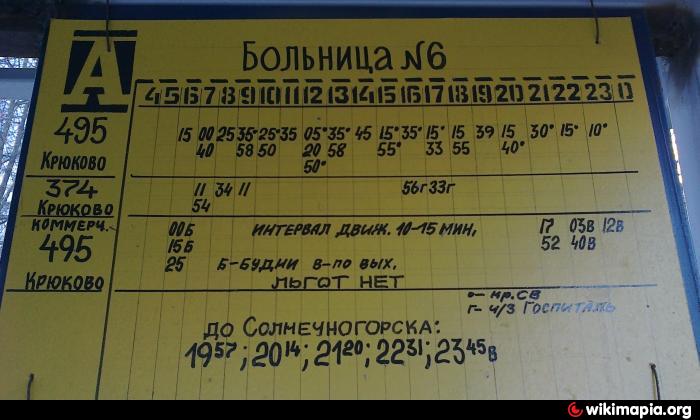 А
БОЛЬНИЦА №6
4 5 6 7 8 9 10 11 12 13 14 15 16 17 18 19 20 21 22 23 0
495 15 00 25 35° 25° 35 05° 35° 45 15° 35° 15° 15 39 15 30° 15° 10°
КРЮКОВО 40 58 50 20 58 55° 33 55 40°
50°
374 11 34 11 56г 33г
КРЮКОВО 54
КОММЕРЧ. 00Б ИНТЕРВАЛ ДВИЖ. 10-15 МИН, 17 03В 12В
495 15Б 52 40В
КРЮКОВО 25 Б-БУДНИ В-ПО ВЫХ.
ЛЬГОТ НЕТ
о- кр.СВ
г- ч/з Госпиталь
ДО СОЛНЕЧНОГОРСКА:
19 57; 20 14; 21 20; 22 31; 23 45 В
wikimapia.org